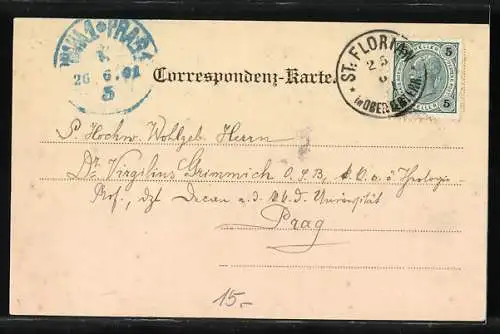 PRAG
26 6 01
5
Correspondenz-Karte.
ST. FLORIAN
25
6
HELLER
5
5
S. Hochw. Wohlgeb. Herrn
Dr. Virgilius Grimmich O.S.B., k.k. o. ö. Theologie-
Prof., dzt Decan a. d. k.k. d. Universität
Prag
15.-